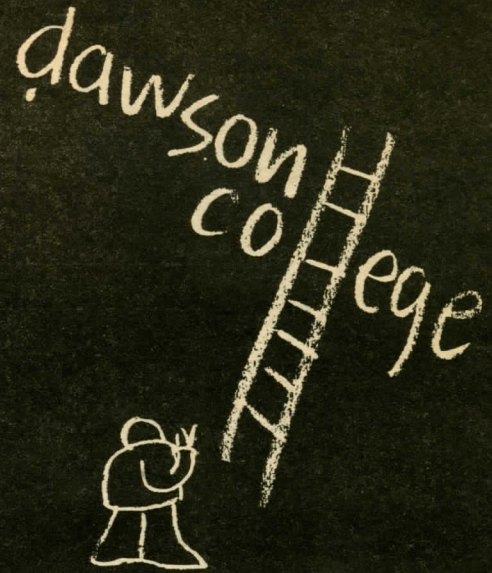 dawson
college